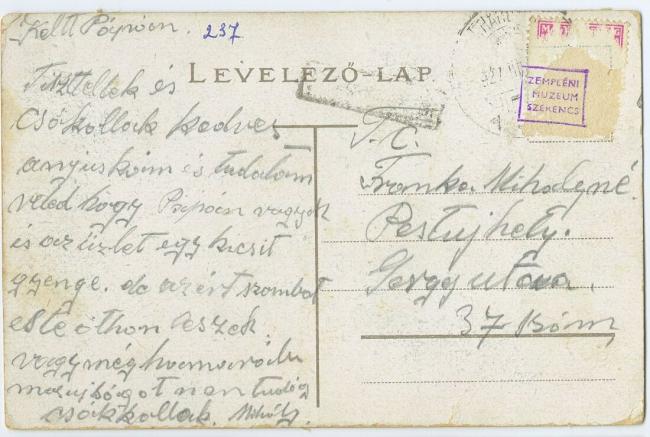 Kelt Pápán.
237
LEVELEZŐ-LAP
Tisztellek és
csókollak kedves
anyuskám és tudatom
veled hogy Pápán vagyok
és az üzlet egy kicsit
gyenge. de azért szombat
este othon leszek
vagy még hamaráb
más ujságot nem tudok
csókollak. Mihály.
T. c.
Franka Mihályné
Pestujhely.
Gergy utca.
37 szám
ZEMPLÉNI
MÚZEUM
SZERENCS